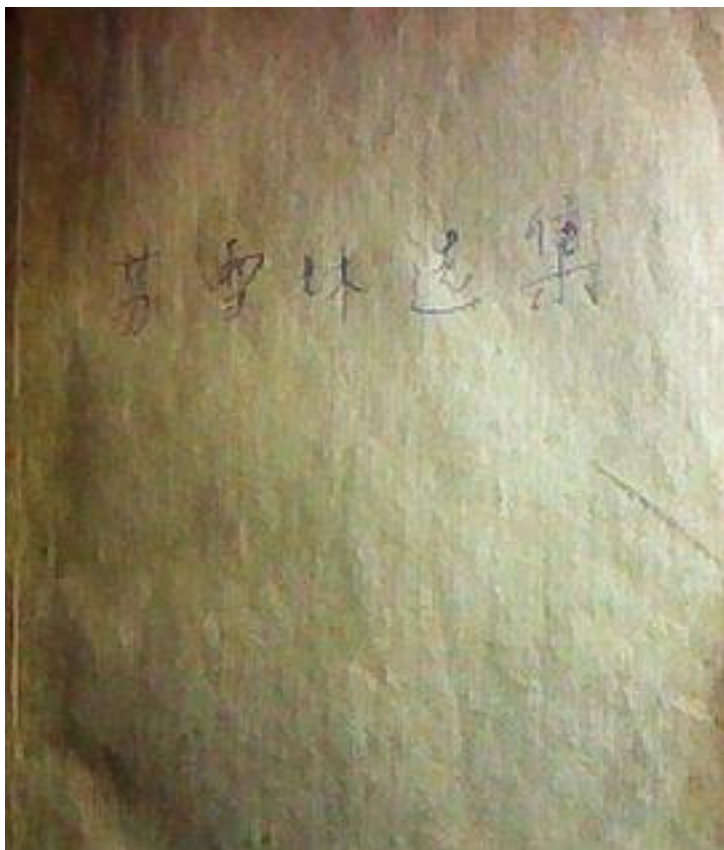 苏雪林选集